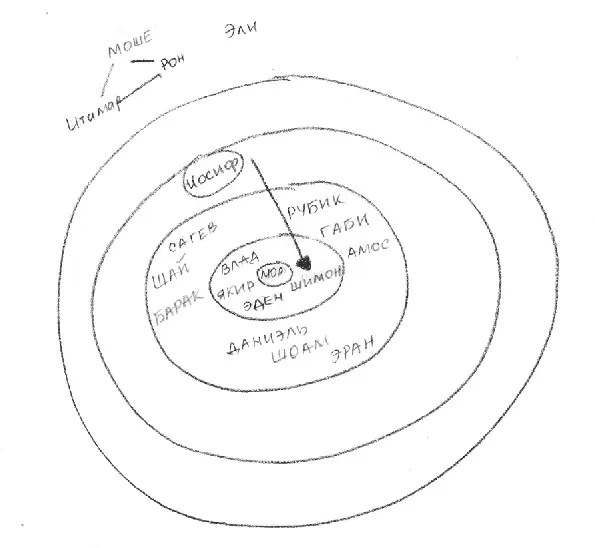 ЭЛИ
МОШЕ
РОН
Итимар
Иосиф
РУБИК
САГЕВ
ГАБИ
ШАЙ
ВЛАД
АМОС
МОР
ЯКИР
ШИМОН
БАРАК
ЭДЕН
ДАНИЭЛЬ
ШОАМ
ЭРАН